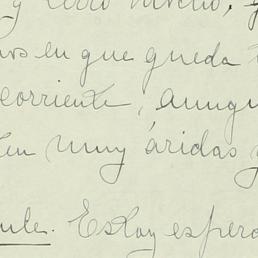 y
os en que queda
corriente, aunqu
en muy áridas y
nte. Estoy espera